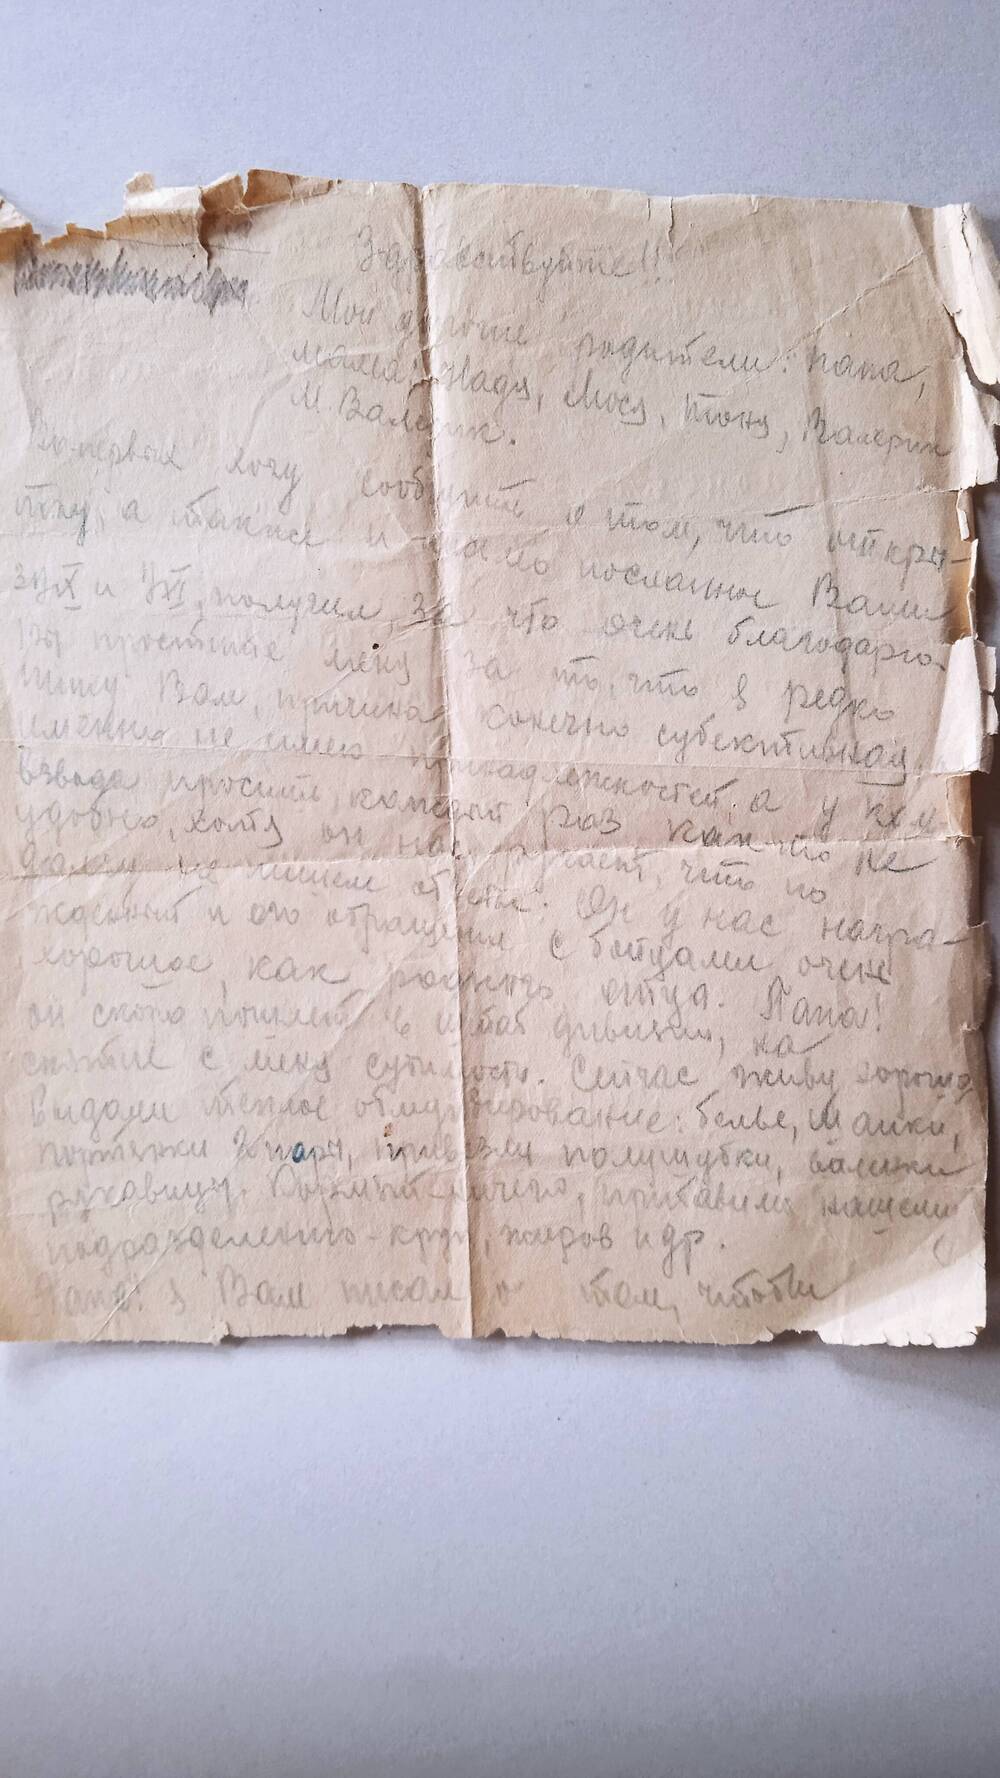 Здравствуйте!!
Мои дорогие родители: папа,
мама, Надя, Мося, Тоня, Валерик
М. Валерик.
Во-первых хочу сообщить о том, что откры-
тку, а также и письмо посланное Вами
3/X и 7/XI, получил, за что очень благодарю.
простите меня за то, что я редко
пишу Вам, причина конечно субективная
именно не имею принадлежностей, а у ком
взвода просить, каждый раз как то не
удобно, хотя он нас ругает, что по
долгу не пишем ответы. Он у нас награ-
жденный и его обращения с бойцами очень
хорошое, как родного отца. Папа!
он скоро пошлет в штаб дивизии, на
снятие с меня судимости. Сейчас живу хорошо
выдали теплое обмундирование: белье, шапки,
портянки 2 пары, привезли полушубки, валенки
рукавицы. Кормят ничего, прибавили нашему
подразделению - круп, жиров и др.
Папа! я Вам писал о том, чтобы